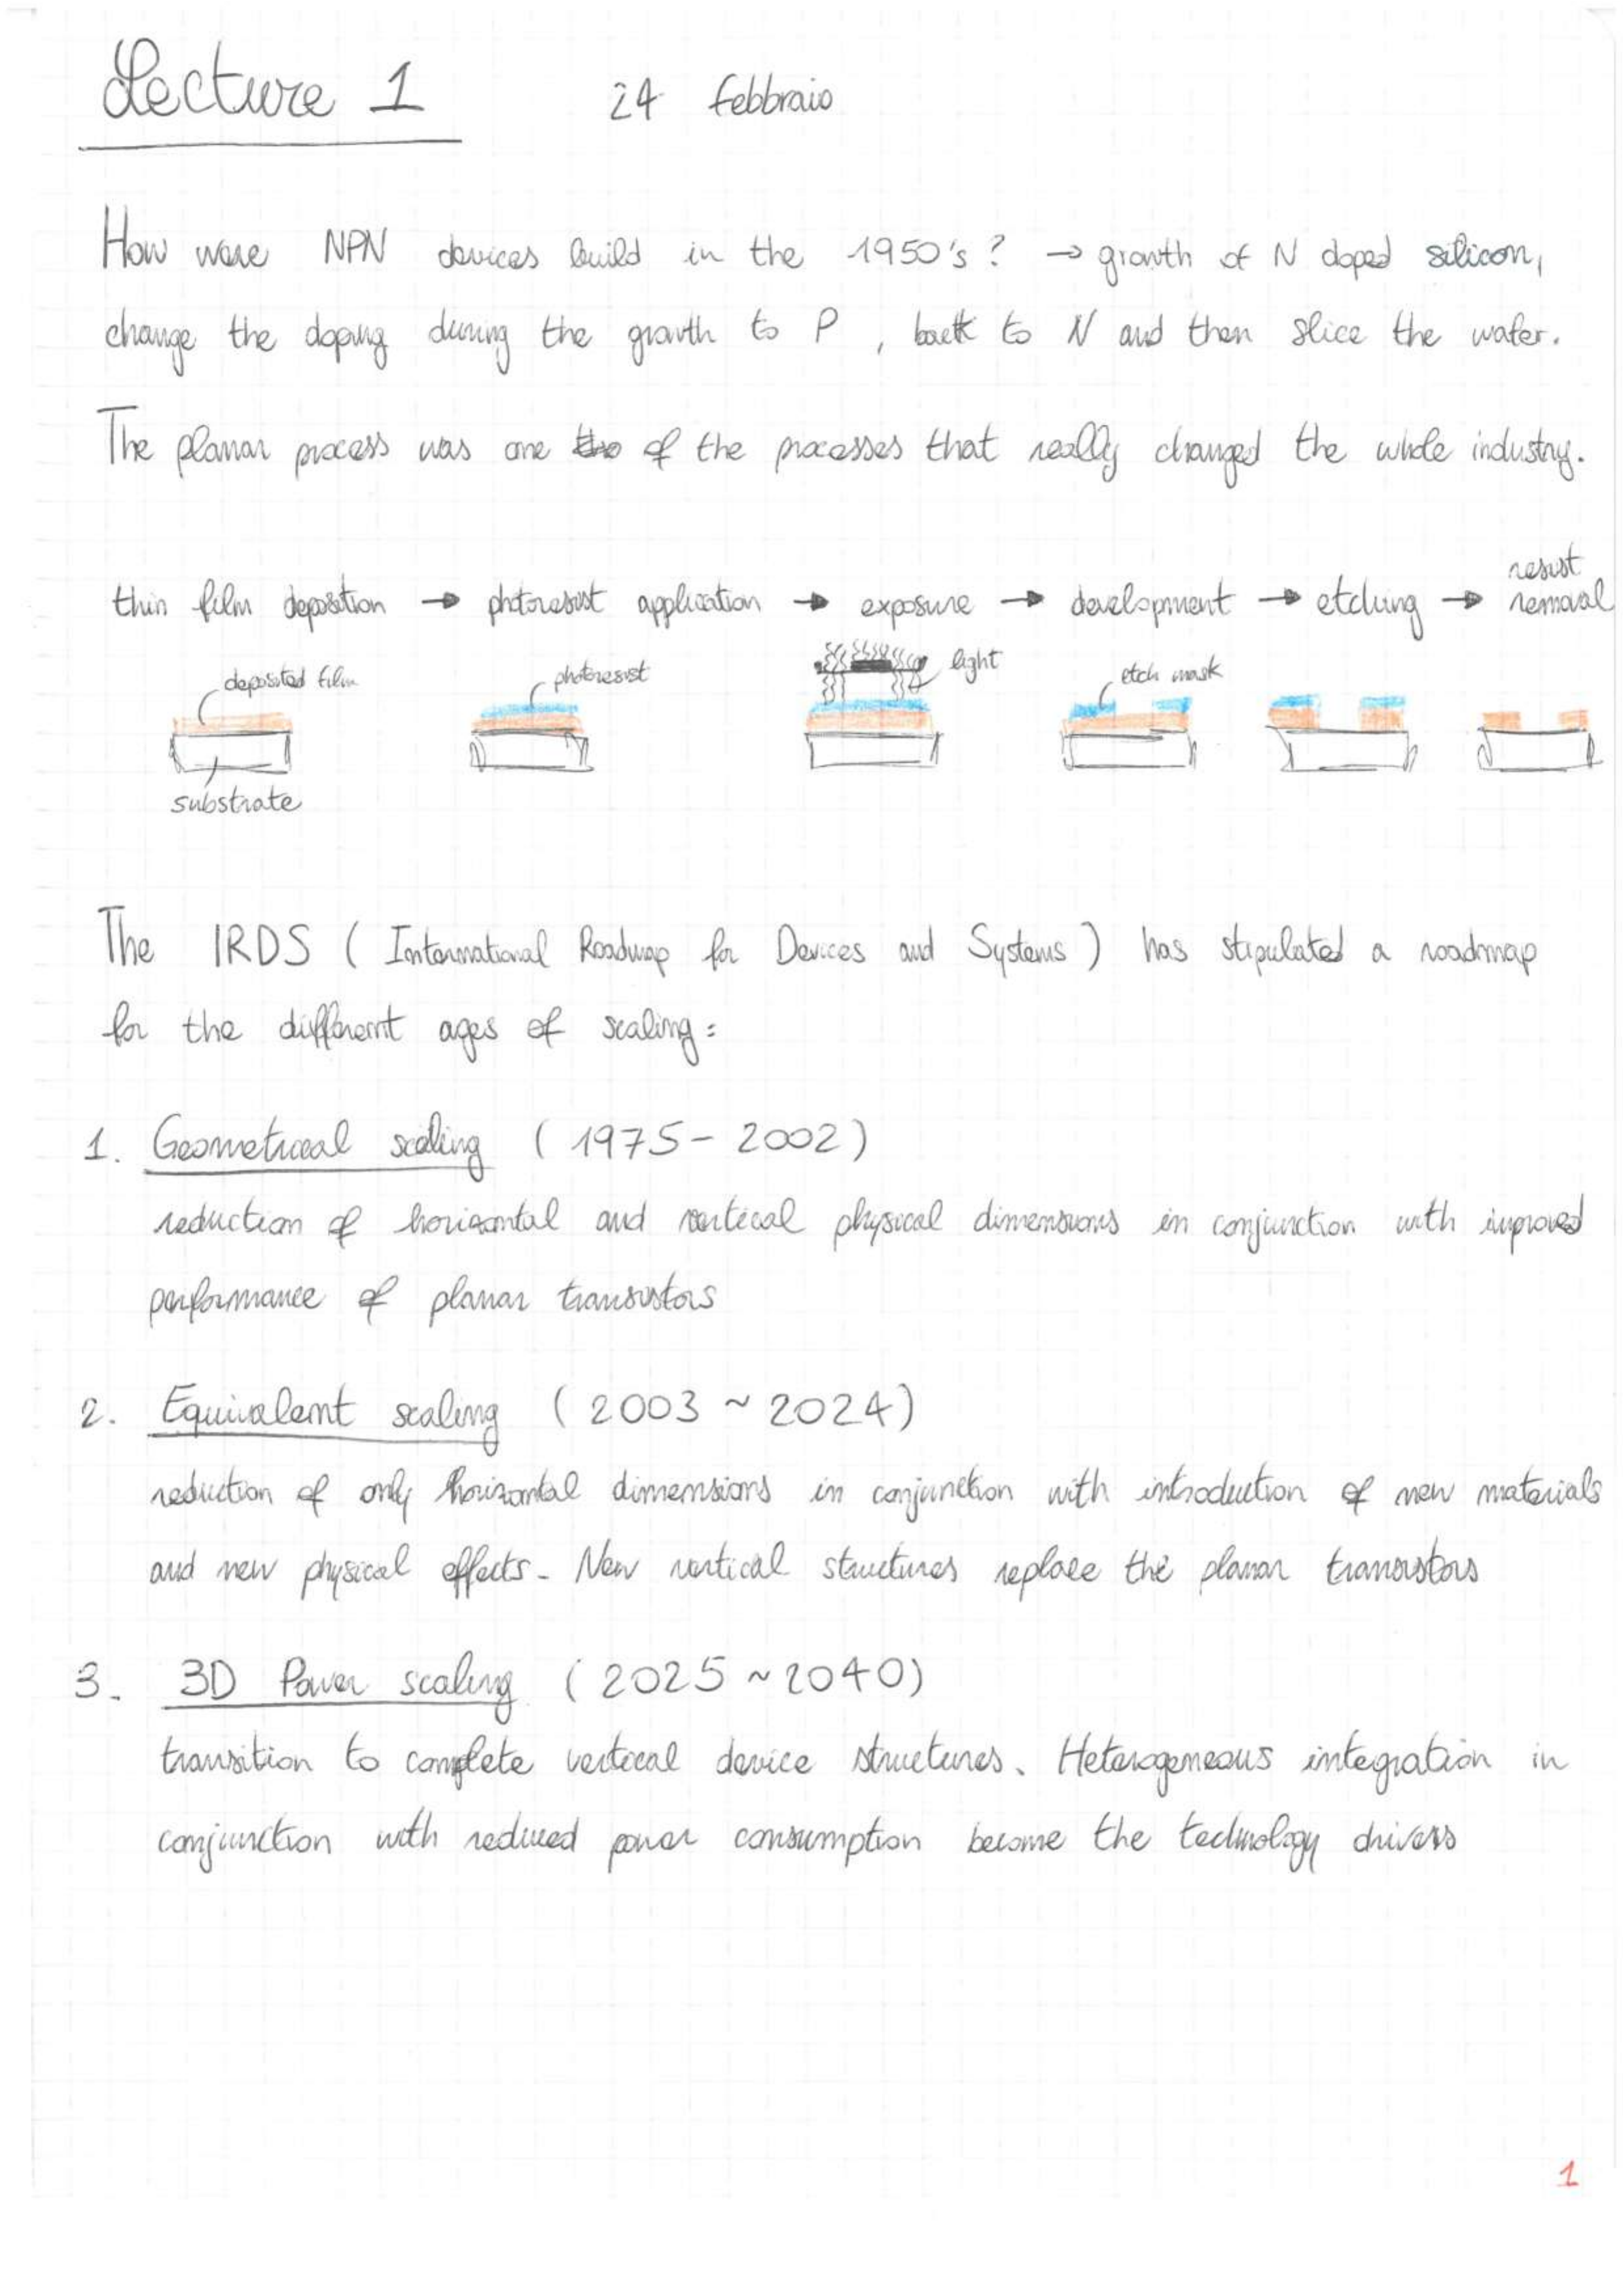 Lecture 1 24 febbraio
How were NPN devices build in the 1950's? → growth of N doped silicon,
change the doping during the growth to P, back to N and then slice the wafer.
The planar process was one of the processes that really changed the whole industry.
thin film deposition → photoresist application → exposure → development → etching → resist removal
deposited film photoresist light etch mask
substrate
The IRDS (International Roadmap for Devices and Systems) has stipulated a roadmap
for the different ages of scaling:
1. Geometrical scaling (1975 - 2002)
reduction of horizontal and vertical physical dimensions in conjunction with improved
performance of planar transistors
2. Equivalent scaling (2003 ~ 2024)
reduction of only horizontal dimensions in conjunction with introduction of new materials
and new physical effects. New vertical structures replace the planar transistors
3. 3D Power scaling (2025 ~ 2040)
transition to complete vertical device structures. Heterogeneous integration in
conjunction with reduced power consumption become the technology drivers
1